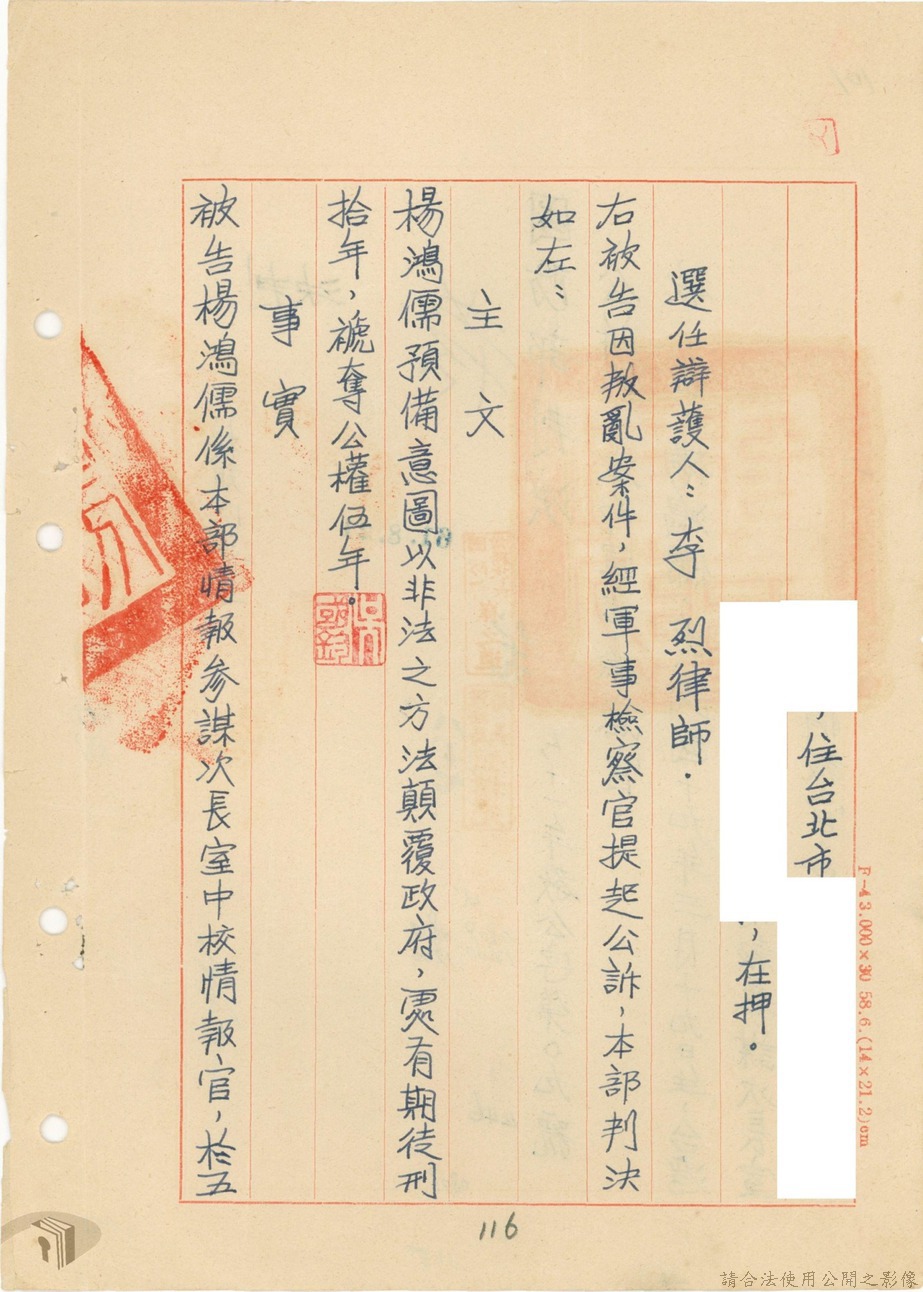 ，住台北市
，在押。
選任辯護人：李　烈律師．
右被告因叛亂案件，經軍事檢察官提起公訴，本部判決
如左：
主　文
楊鴻儒預備意圖以非法之方法顛覆政府，處有期徒刑
拾年，褫奪公權伍年．
事　實
被告楊鴻儒係本部情報參謀次長室中校情報官，於五
F-43.000×30 58.6.(14×21.2)cm
116
請合法使用公開之影像